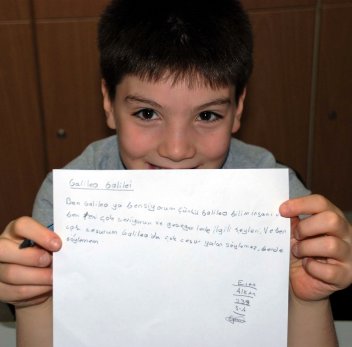 Galileo Galilei
Ben Galileo ya benziyorum çünkü Galileo bilim insanı
ben çok seviyorum ve gezegenlerle ilgili şeyleri. Ve ben
çok cesurum Galileo'da çok cesur yalan söylemez. Bende
söylemem